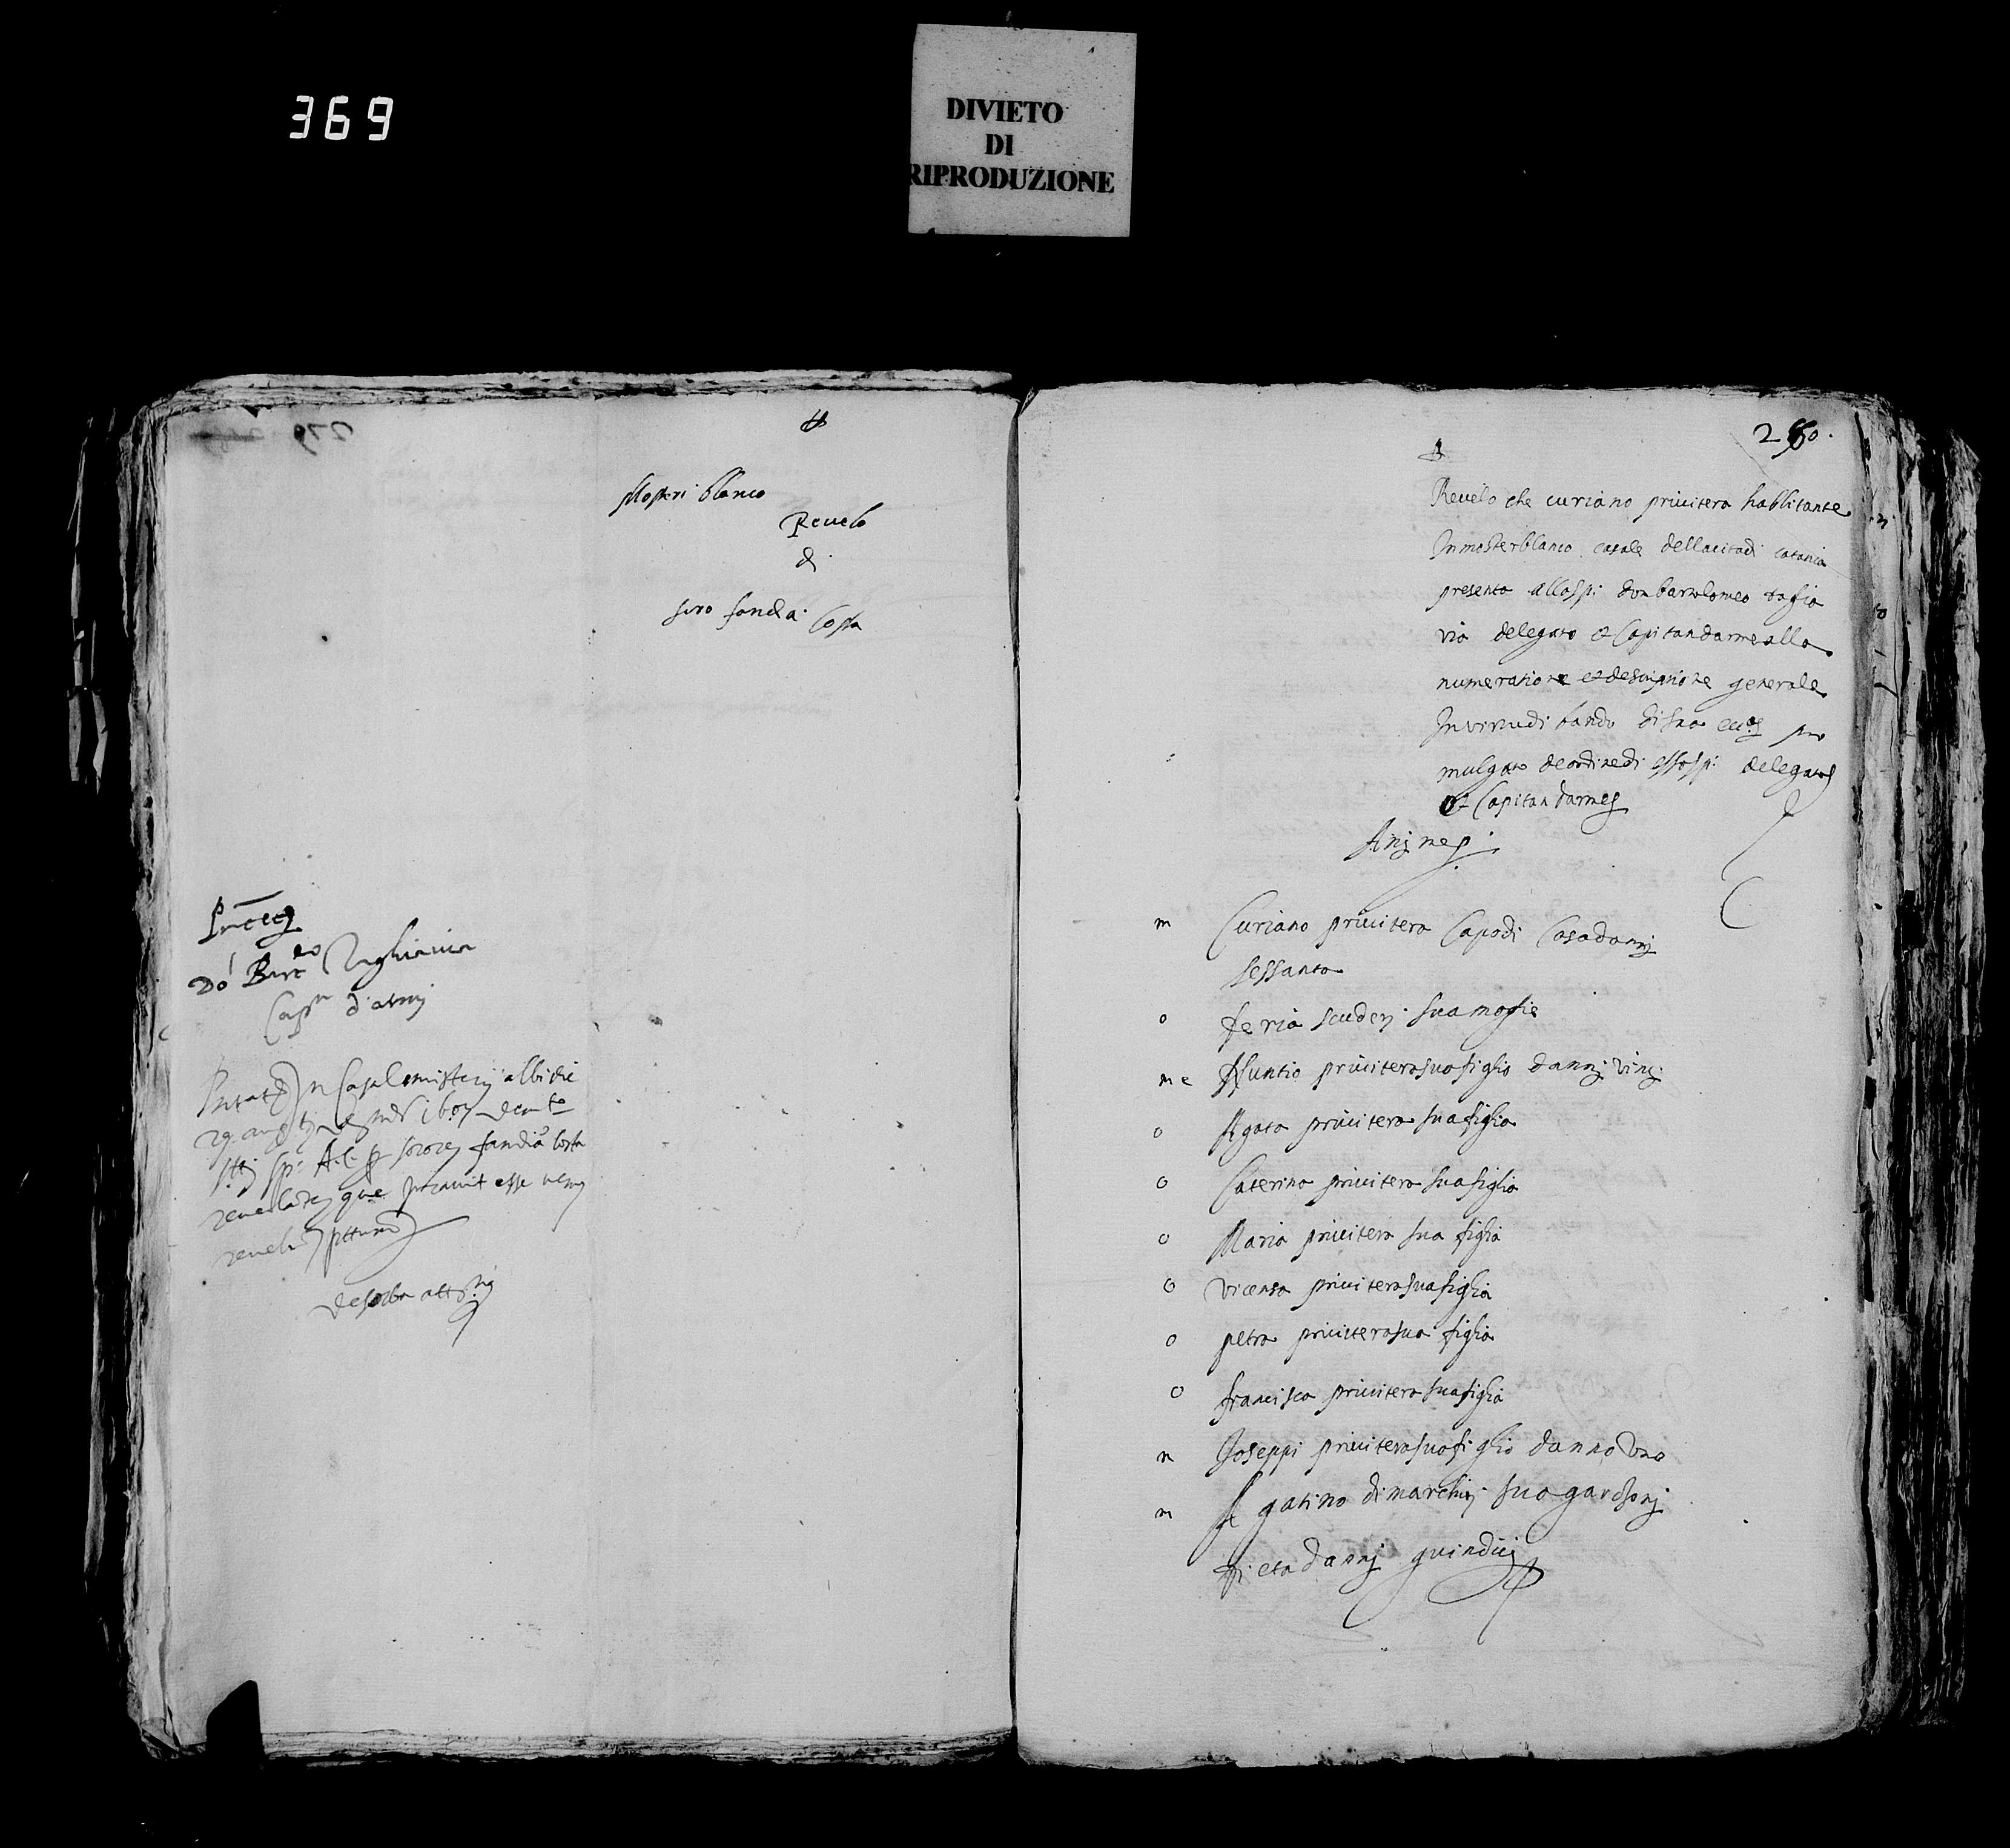 369
DIVIETO
DI
RIPRODUZIONE
279
Mostri blanco
Revelo
di
soro fandia Costa
Don Bart.eo
Cap.n d'armi
In Casale misterij albi die
sp. A. C. fandia Costa
que iuravit esse
280.
Revelo che curiano privitera habbitante
In mosterblanco casale dellacitadi catania
presenta allo sp. don bartolomeo tafia
via delegato et Capitandarme alla
numeratione et descriptione generale
In virtudi bando di sua ecc.a pro
mulgato de ordine di esso sp. delegato
et Capitan darme
Anime
m Curiano privitera Capo di Casa danni
sessanta
o feria scuderi sua mogie
me Asuntio privitera suo figlio danni vinti
o Agata privitera sua figlia
o Caterina privitera sua figlia
o Maria privitera sua figlia
o vicensa privitera sua figlia
o petra privitera sua figlia
o francisca privitera sua figlia
m Joseppi privitera suo figlio danno uno
m Agatino di marchisi suo garcsoni
di eta danni quindici